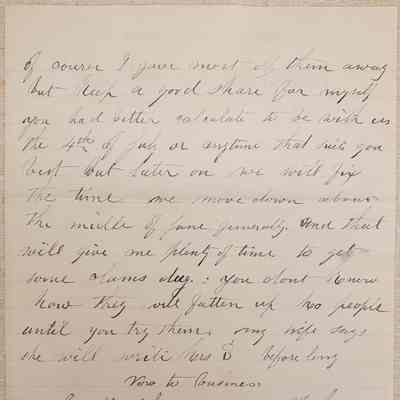 of course I gave most of them away
but keep a good share for myself
you had better calculate to be with us
the 4th of July or anytime that suits you
best but later on we will fix
the time we move down about
the middle of June generally. and that
will give me plenty of time to get
some clams dug. : you dont know
how they will fatten up poor people
until you try them. my wife says
she will write Mrs B before long
Now to business